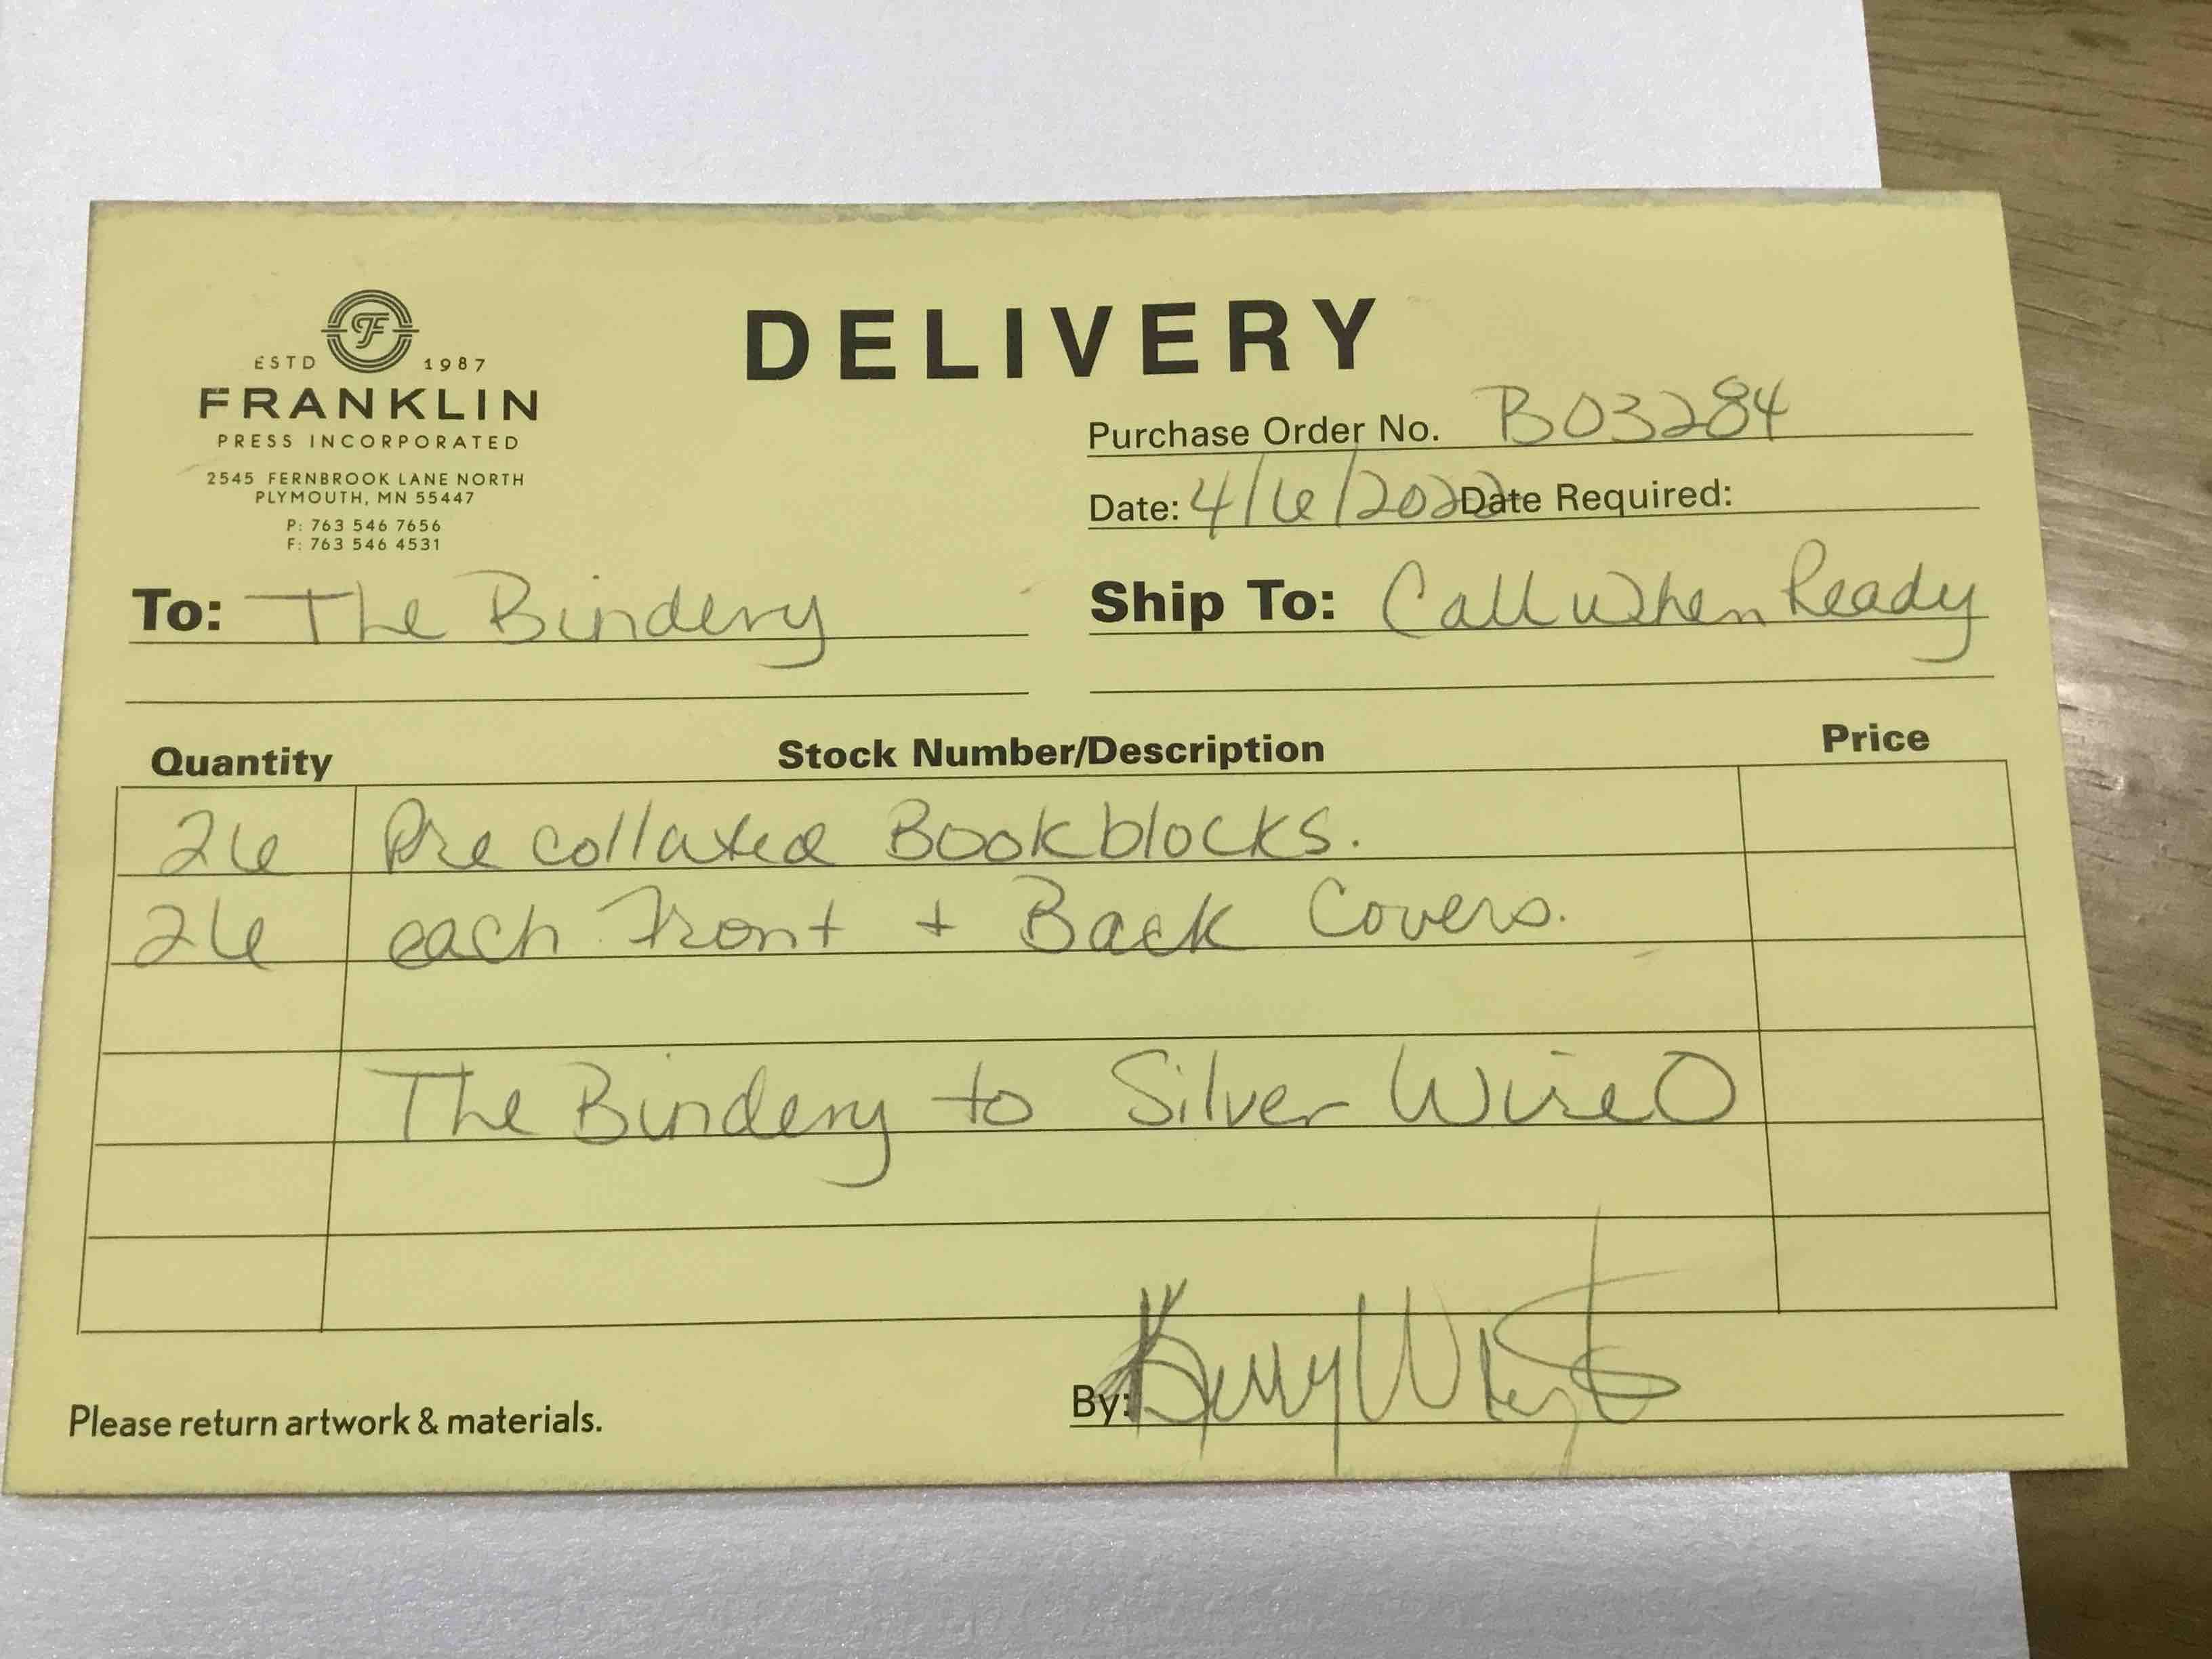 ESTD F 1987
FRANKLIN
PRESS INCORPORATED
2545 FERNBROOK LANE NORTH
PLYMOUTH, MN 55447
P: 763 546 7656
F: 763 546 4531
DELIVERY
Purchase Order No. B03284
Date: 4/6/2022 Date Required:
To: The Bindery
Ship To: Call When Ready
Quantity Stock Number/Description Price
26 Pre collated Bookblocks.
26 each Front + Back Covers.
The Bindery to Silver Wire O
Please return artwork & materials.
By: Kerry